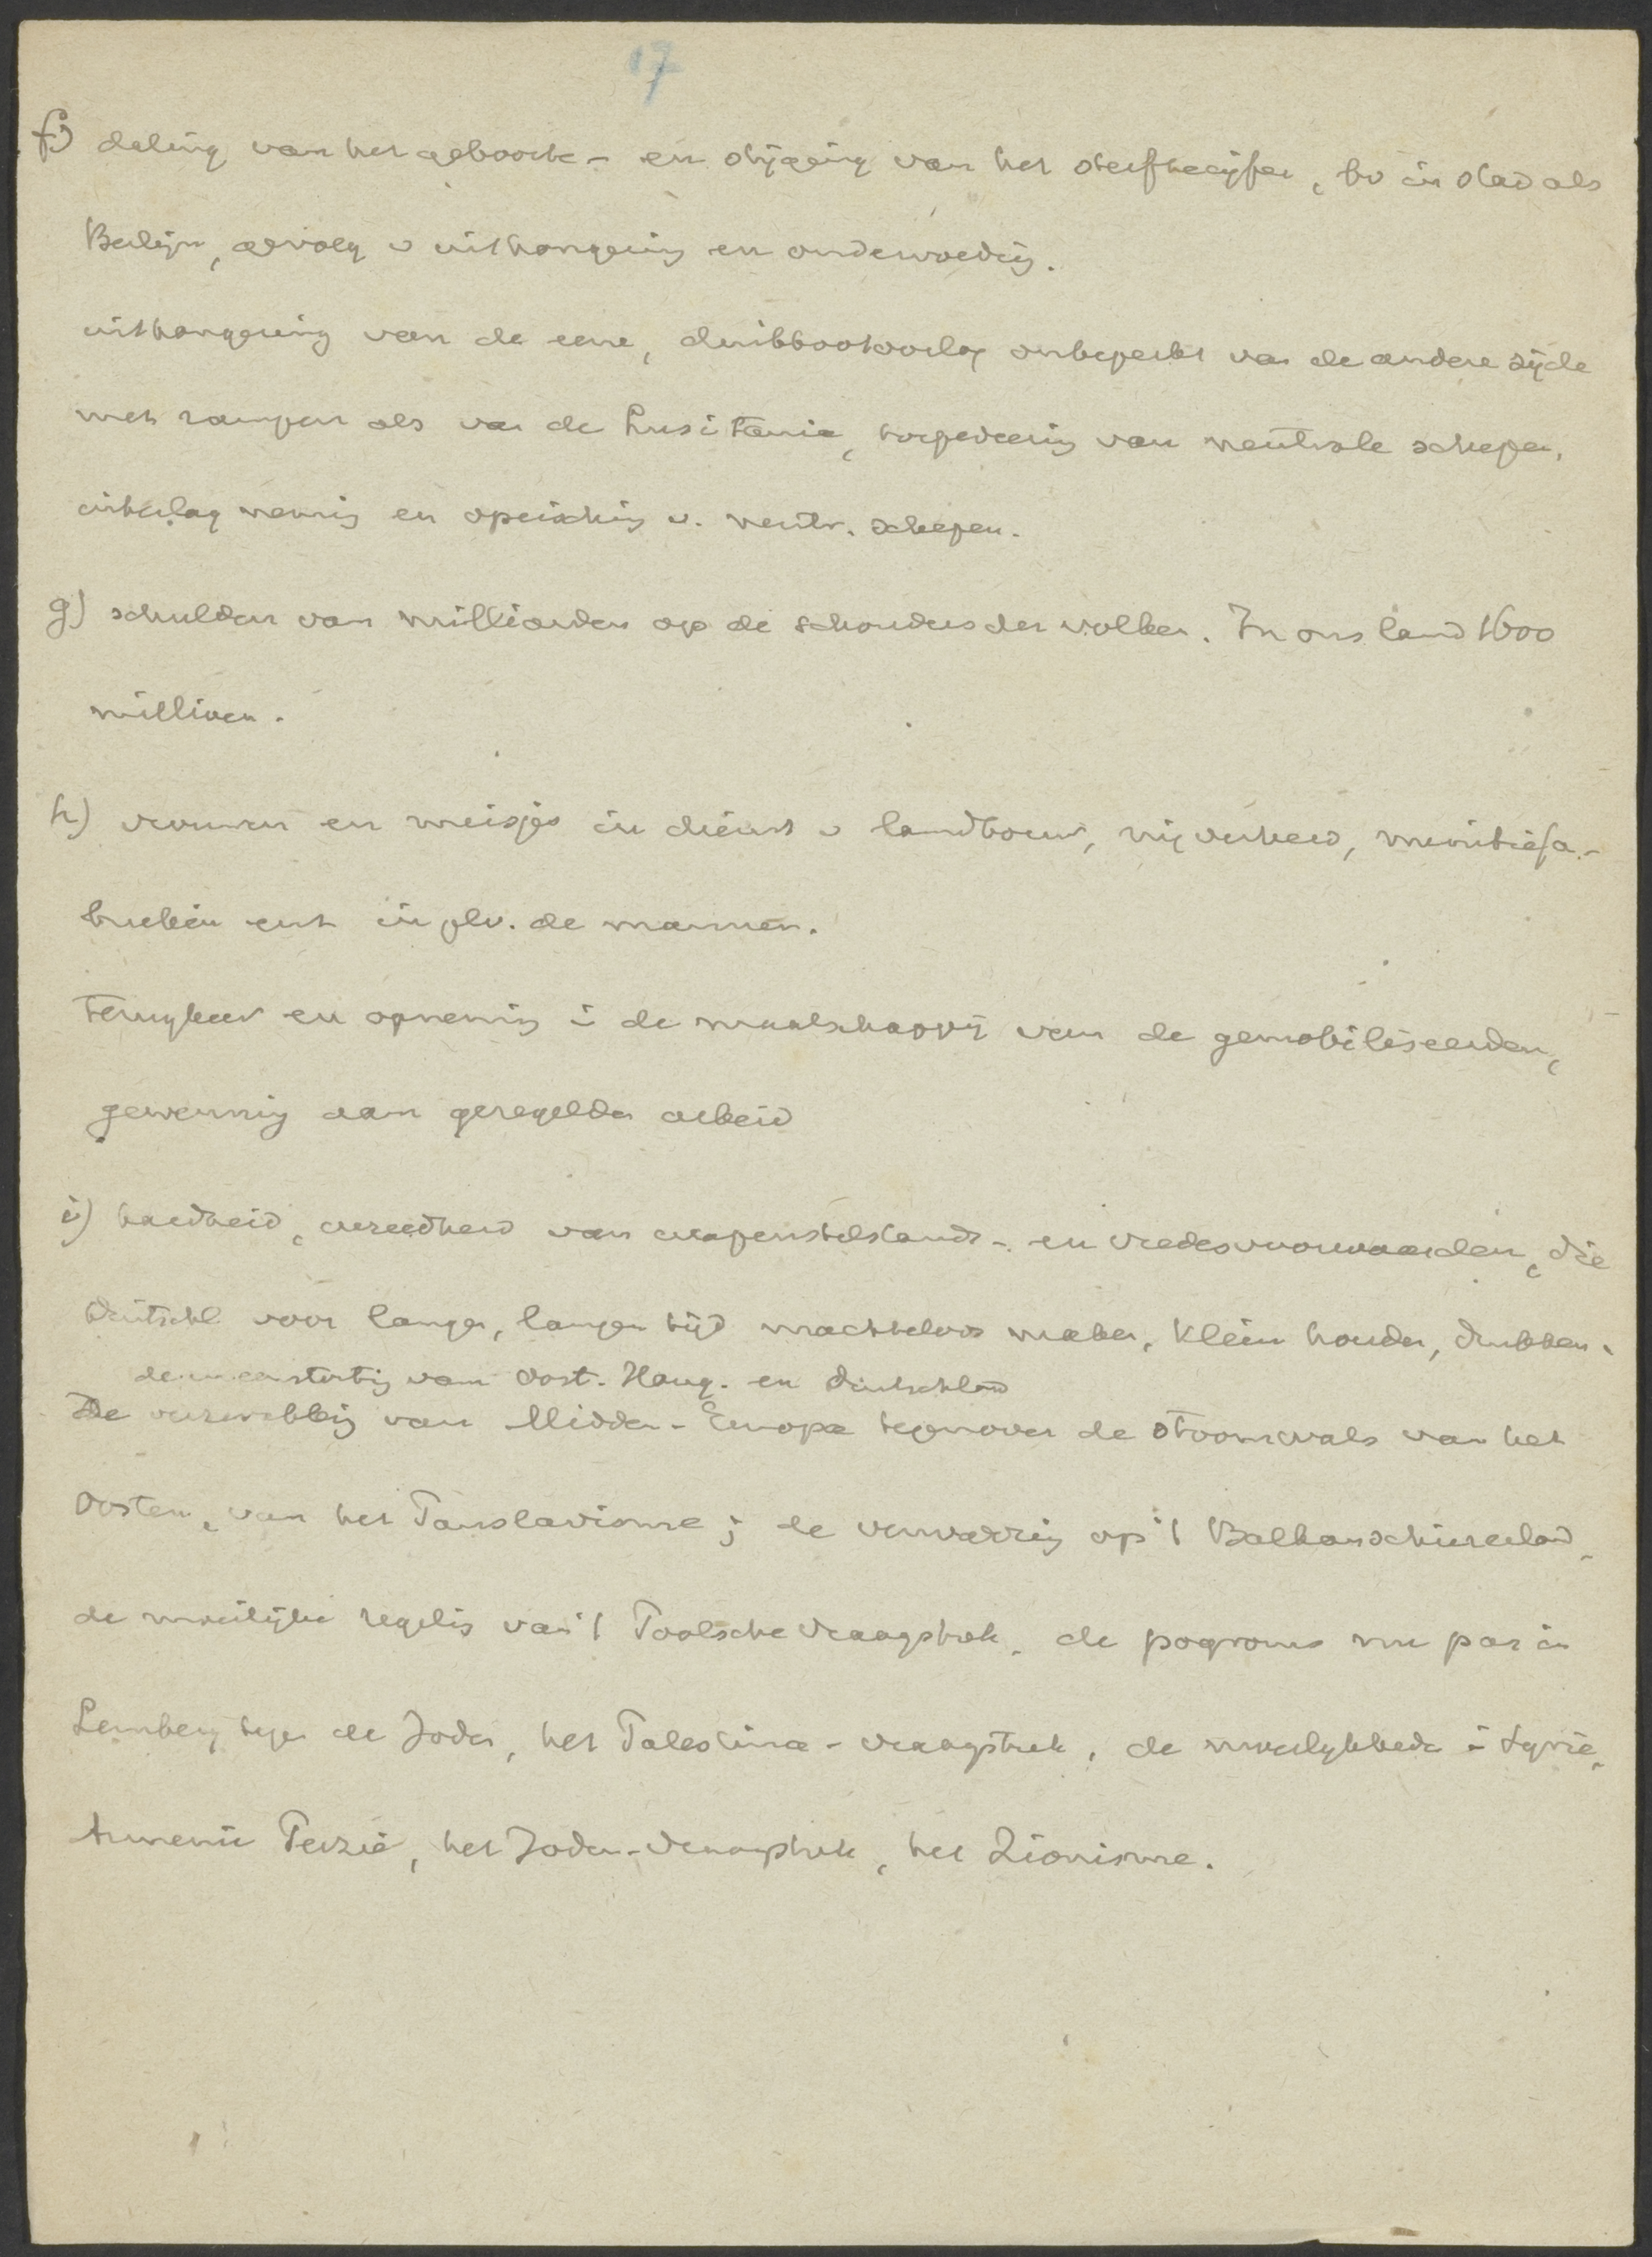 17
f) daling van het geboorte- en stijging van het sterftecijfer, bv in stad als
Berlijn, gevolg v uithongering en ondervoeding.
uithongering van de eene, duikbootoorlog onbeperkt van de andere zijde
met rampen als van de Lusitania, torpedeering van neutrale schepen,
inbeslagneming en opeisching v. neutr. schepen.
g) schulden van milliarden op de schouders der volken. In ons land 1600
millioen.
h) vrouwen en meisjes in dienst v landbouw, nijverheid, munitiefa-
brieken enz in plv. de mannen.
Terugkeer en opneming i de maatschappij van de gemobiliseerden,
gewenning aan geregelden arbeid
i) hardheid, wreedheid van wapenstilstands- en vredesvoorwaarden, die
Duitschl. voor langen, langen tijd machteloos maken, klein houden, drukken.
de ineenstorting van Oost. Hong. en Duitschland
De verzwakking van Midden-Europa tegenover de stoomwals van het
Oosten, van het Panslavisme; de verwarring op 't Balkanschiereiland,
de moeilijke regeling van 't Poolsche vraagstuk, de pogroms nu pas in
Lemberg tegen de Joden, het Palestina-vraagstuk, de moeilykheden i Syrië,
Armenië Perzië, het Joden-vraagstuk, het Zionisme.